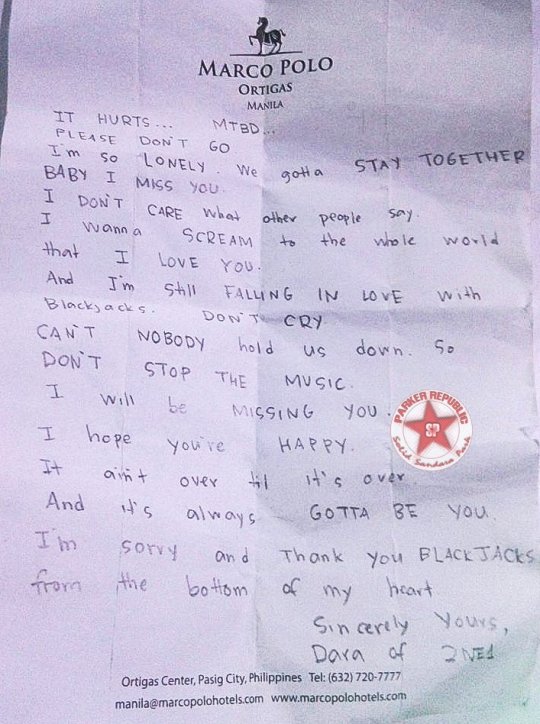 MARCO POLO
ORTIGAS
MANILA
IT HURTS... MTBD...
PLEASE DON'T GO
I'm so LONELY. We gotta STAY TOGETHER
BABY I MISS YOU.
I DON'T CARE what other people say.
I wanna SCREAM to the whole world
that I LOVE YOU.
And I'm still FALLING IN LOVE with
Blackjacks. DON'T CRY
CAN'T NOBODY hold us down. So
DON'T STOP THE MUSIC.
I will be MISSING YOU.
PARKER REPUBLIC
SP
Solid Sandara Park
I hope you're HAPPY.
It ain't over til it's over.
And it's always GOTTA BE YOU.
I'm sorry and Thank you BLACKJACKS
from the bottom of my heart
Sincerely Yours,
Dara of 2NE1
Ortigas Center, Pasig City, Philippines Tel: (632) 720-7777
manila@marcopolohotels.com www.marcopolohotels.com